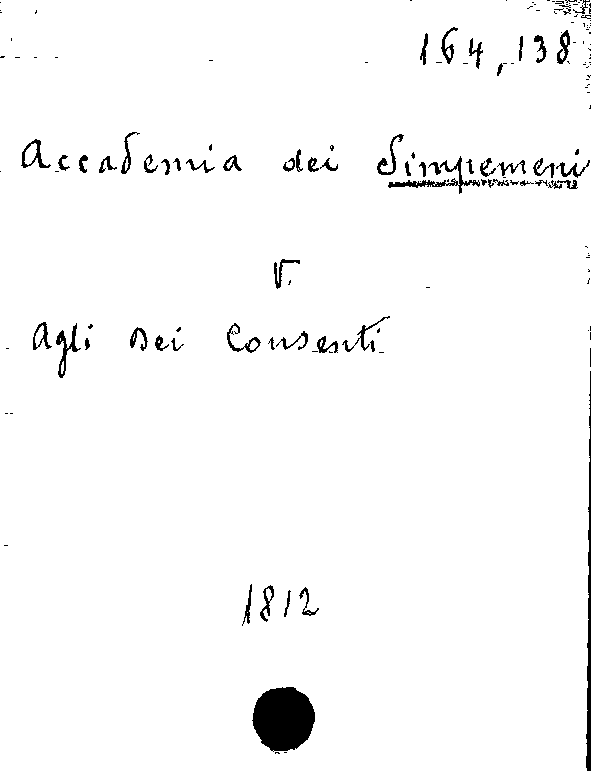 164,138
Accademia dei Simpemeni
V.
Agli Dei Consenti
1812